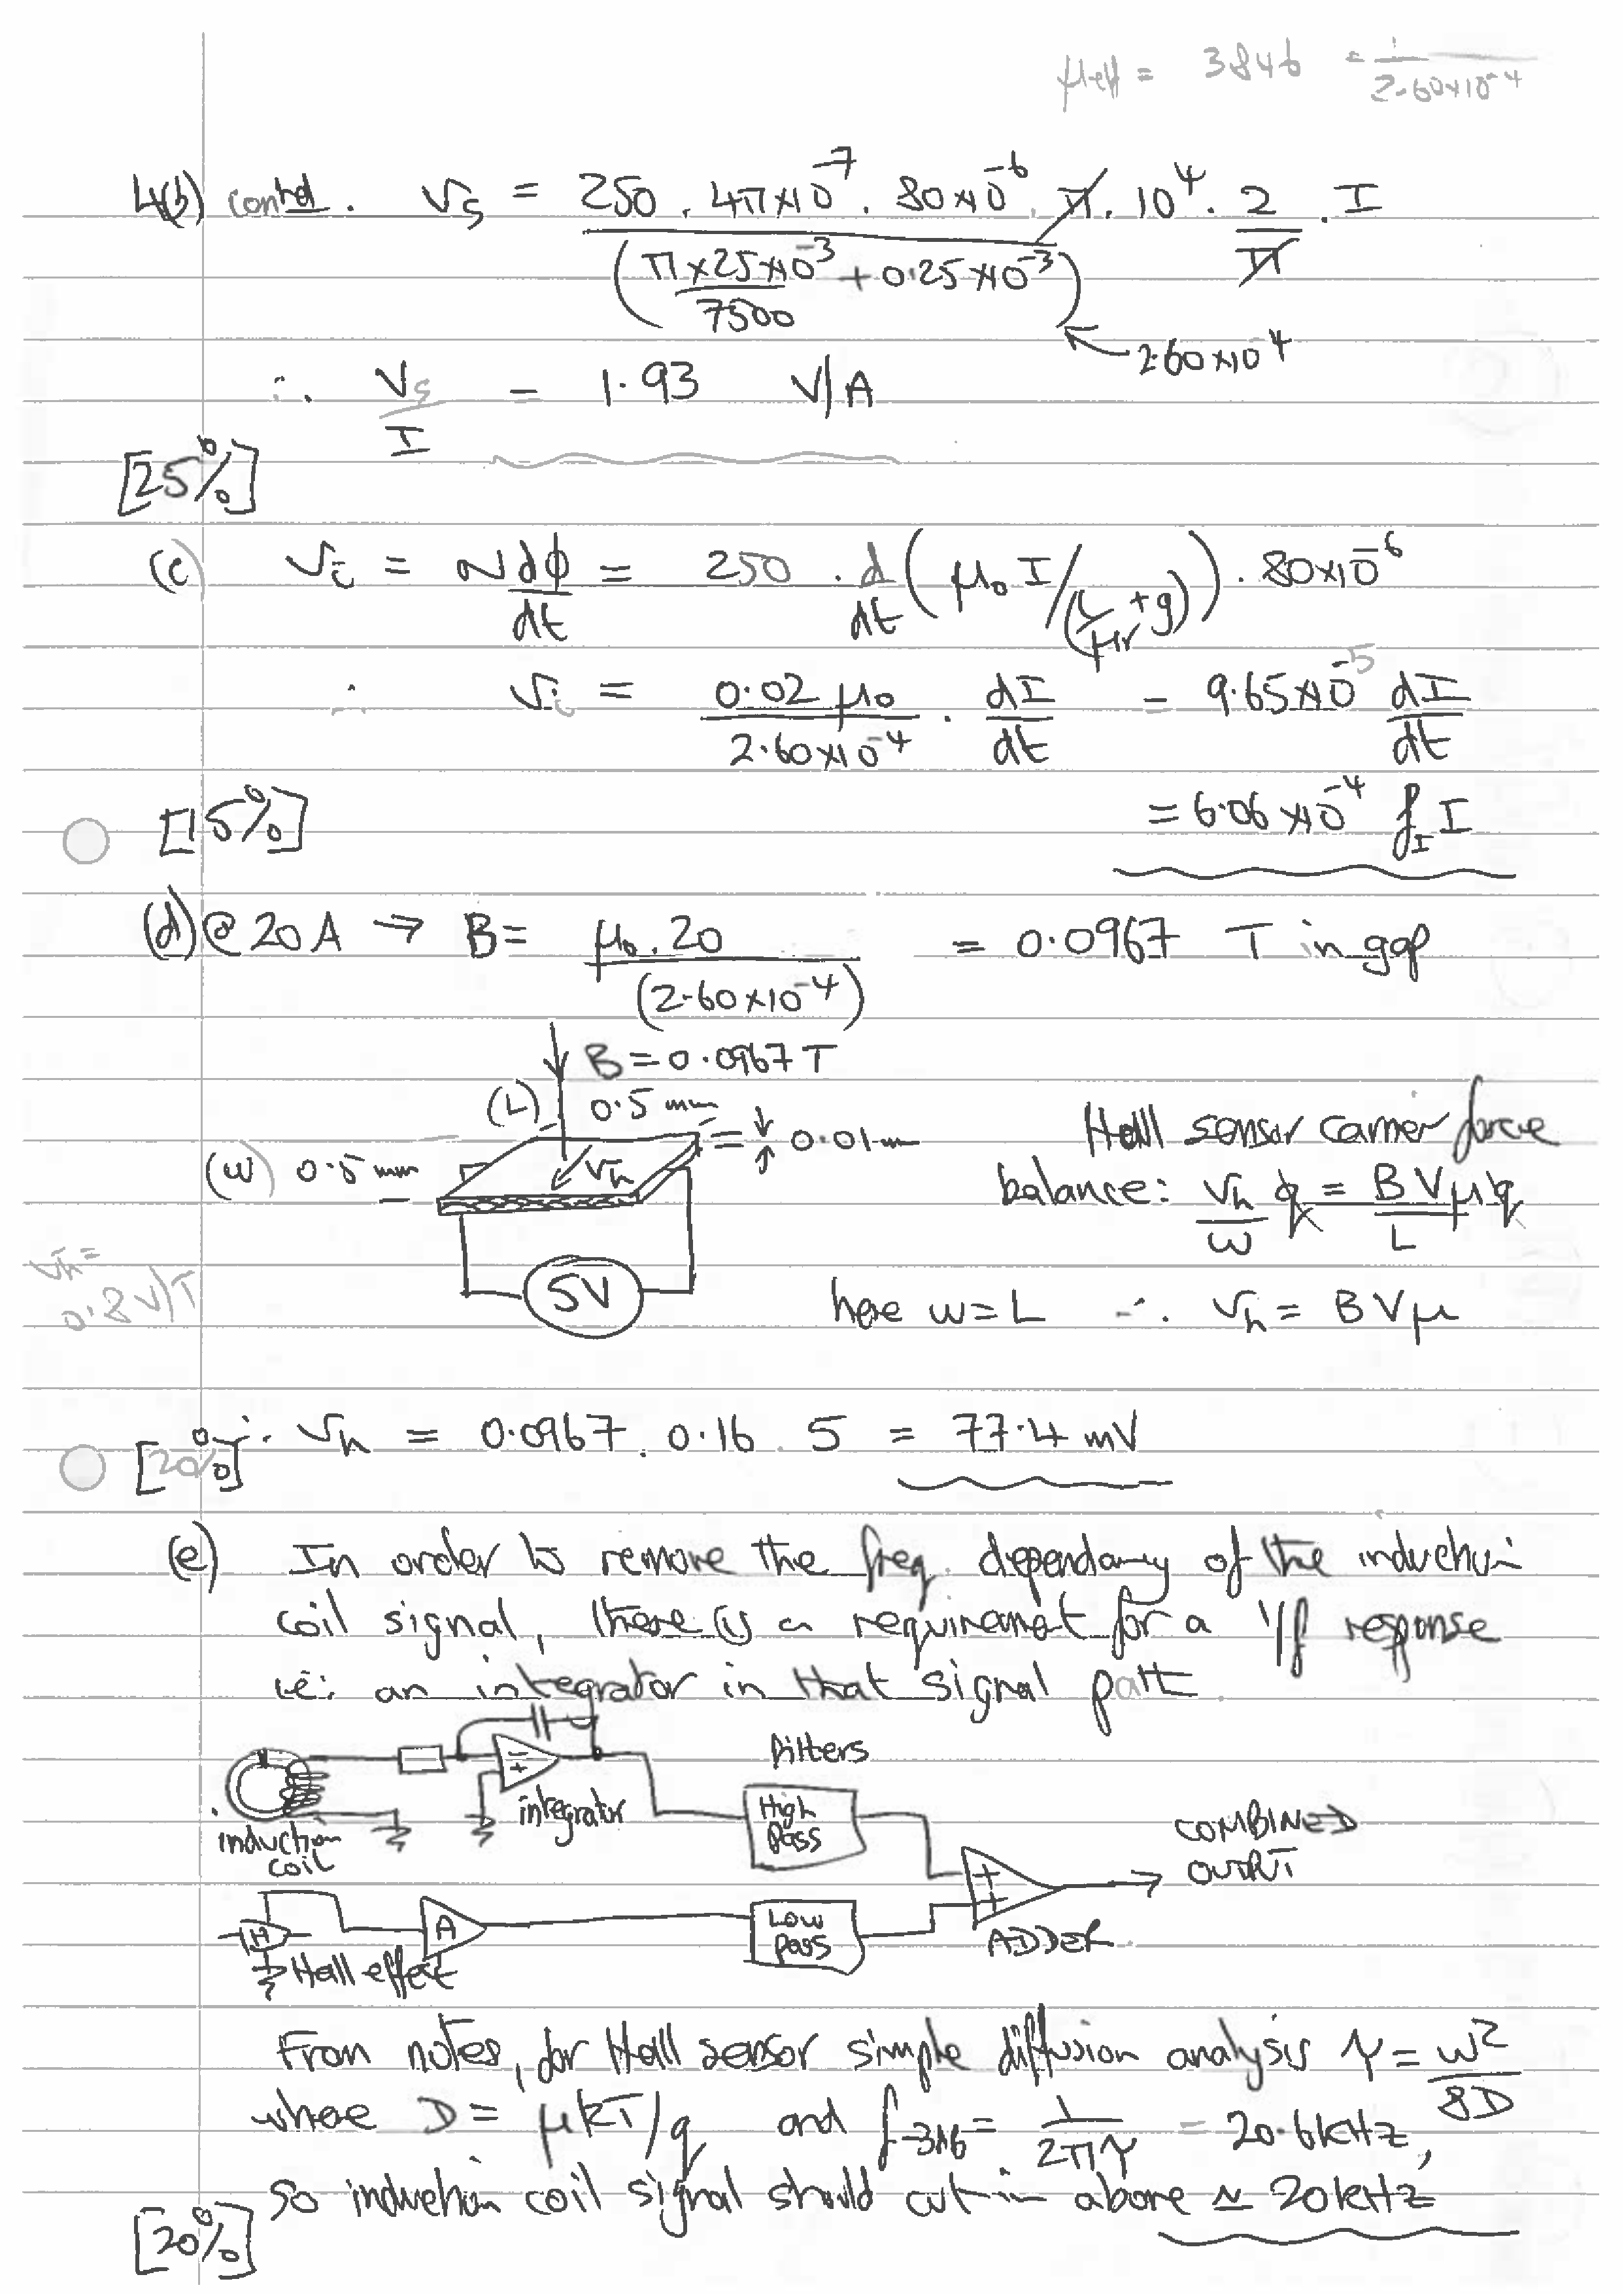 μeff = 3846 = 1/2.60×10⁻⁴
4(b) contd. Vs = 250 . 4π×10⁻⁷ . 80×10⁻⁶ . π . 10⁴ . 2/π . I
(π×25×10⁻³/7500 + 0.25×10⁻³)
2.60×10⁻⁴
∴ Vs/I = 1.93 V/A
[25%]
(c) Vi = N dϕ/dt = 250 . d/dt (μ₀ I/(L/μr + g)) . 80×10⁻⁶
∴ Vi = 0.02 μ₀/2.60×10⁻⁴ . dI/dt = 9.65×10⁻⁵ dI/dt
[15%]
= 6.06×10⁻⁴ f_I I
(d) @ 20A → B = μ₀.20/(2.60×10⁻⁴) = 0.0967 T in gap
B = 0.0967 T
(L) 0.5 mm
0.01 m
(w) 0.5 mm
Vh
5V
Hall sensor carrier force
balance: Vh/w q = BVμq/L
Vh =
0.8 V/T
here w = L ∴ Vh = B V μ
[20%] ∴ Vh = 0.0967 . 0.16 . 5 = 77.4 mV
(e) In order to remove the freq. dependancy of the induction
coil signal, there is a requirement for a 1/f response
ie: an integrator in that signal path.
filters
- +
integrator
High
Pass
induction
coil
COMBINED
OUTPUT
+
+
ADDER
H
A
Low
pass
Hall effect
From notes, for Hall sensor simple diffusion analysis τ = w²/8D
where D = μkT/q and f-3dB = 1/2πτ = 20.6kHz,
so induction coil signal should cut in above ≃ 20kHz
[20%]